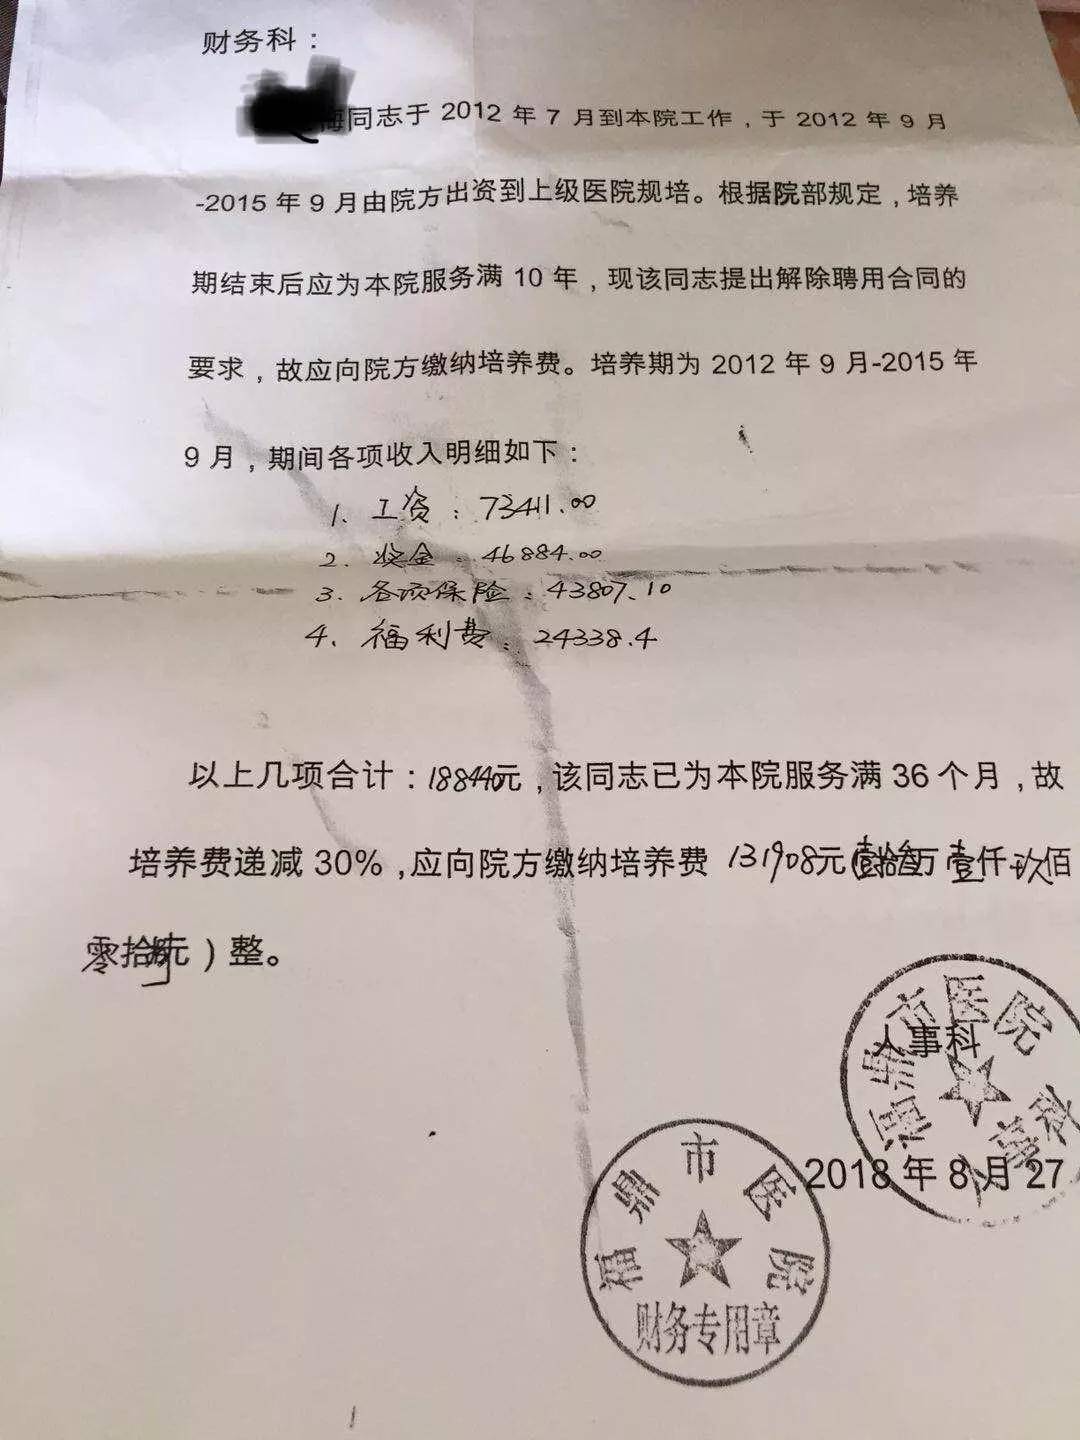 财务科：
海同志于 2012 年 7 月到本院工作，于 2012 年 9 月
-2015 年 9 月由院方出资到上级医院规培。根据院部规定，培养
期结束后应为本院服务满 10 年，现该同志提出解除聘用合同的
要求，故应向院方缴纳培养费。培养期为 2012 年 9 月-2015 年
9 月，期间各项收入明细如下：
1. 工资：73411.00
2. 奖金：46884.00
3. 各项保险：43807.10
4. 福利费：24338.4
以上几项合计：188440元，该同志已为本院服务满 36 个月，故
培养费递减 30%，应向院方缴纳培养费 131908元（壹拾叁万壹仟玖佰
零拾捌元）整。
福鼎市医院
人事科
人事科
2018 年 8 月 27
福鼎市医院
财务专用章